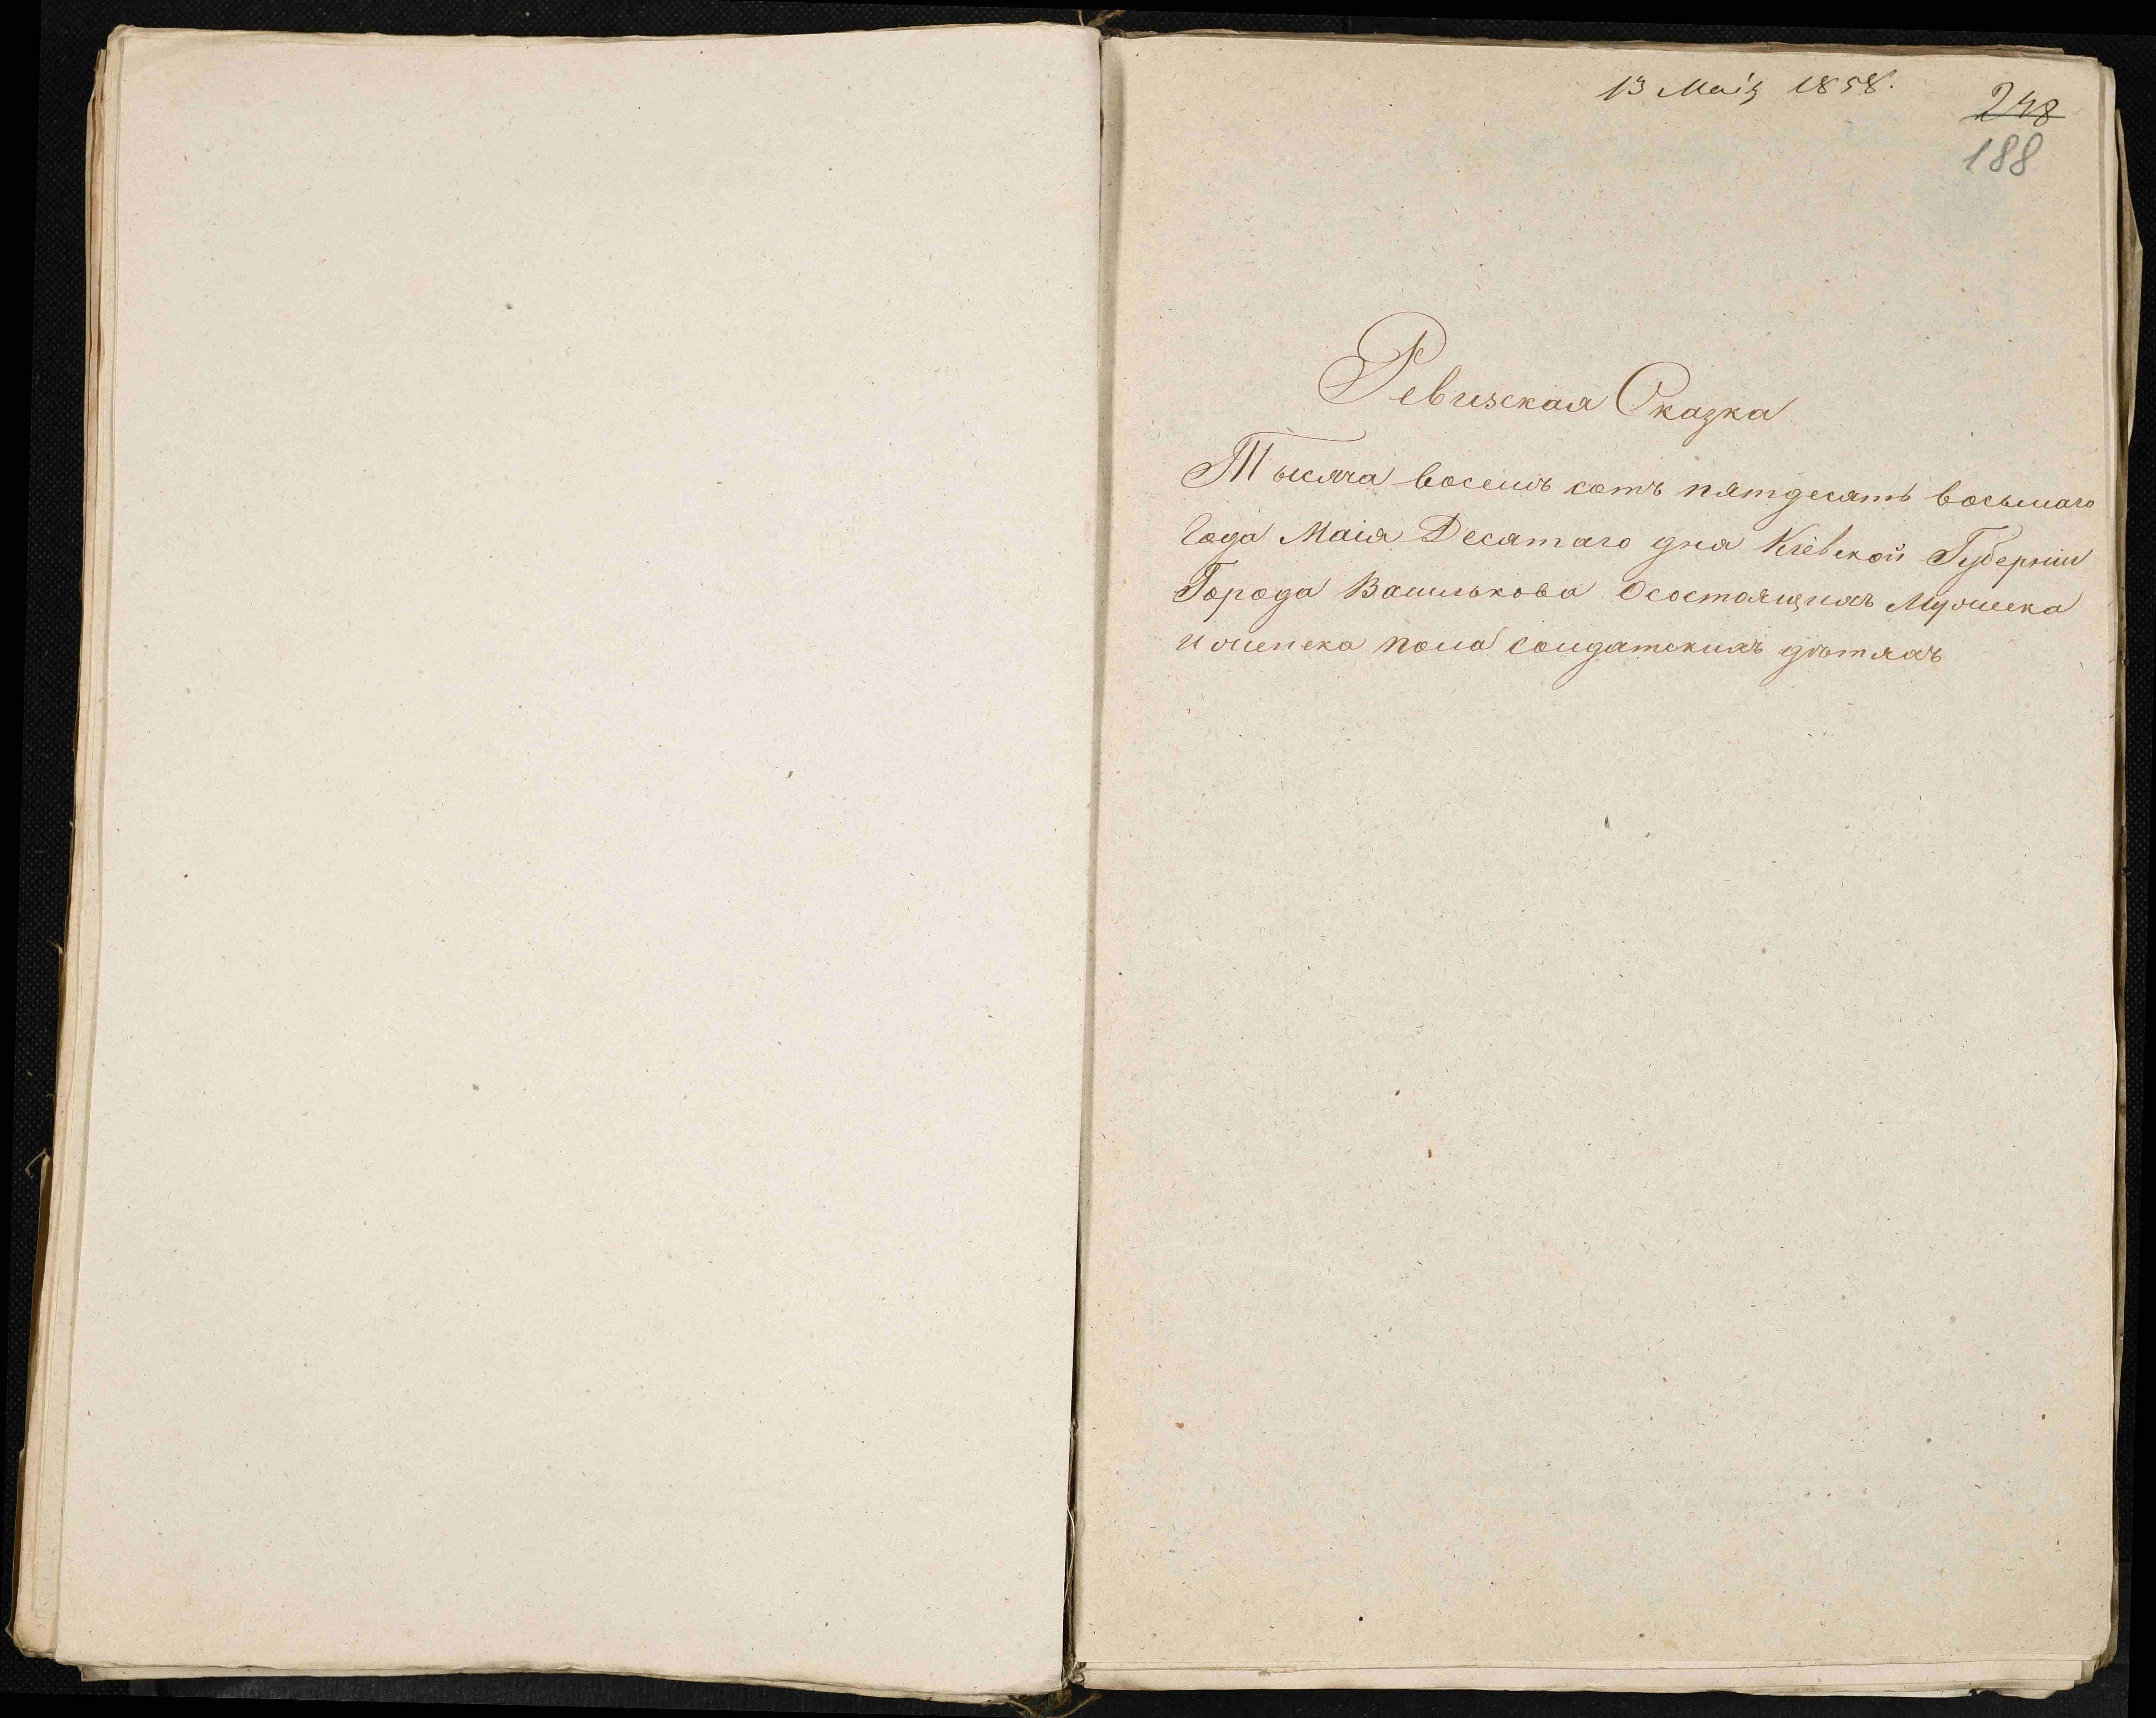 13 Маія 1858.
248
188
Ревизская Сказка
Тысяча восемь сотъ пятдесятъ восьмаго
Года Маія Десятаго дня Кіевской Губерніи
Города Василькова Осостоящихъ Мужеска
и женска пола солдатскихъ дѣтяхъ